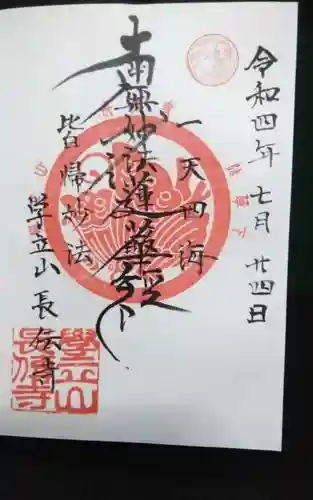 令和四年七月廿四日
一天四海
南無妙法蓮華経
皆帰妙法
学立山 長伝寺
學立山
長傳寺